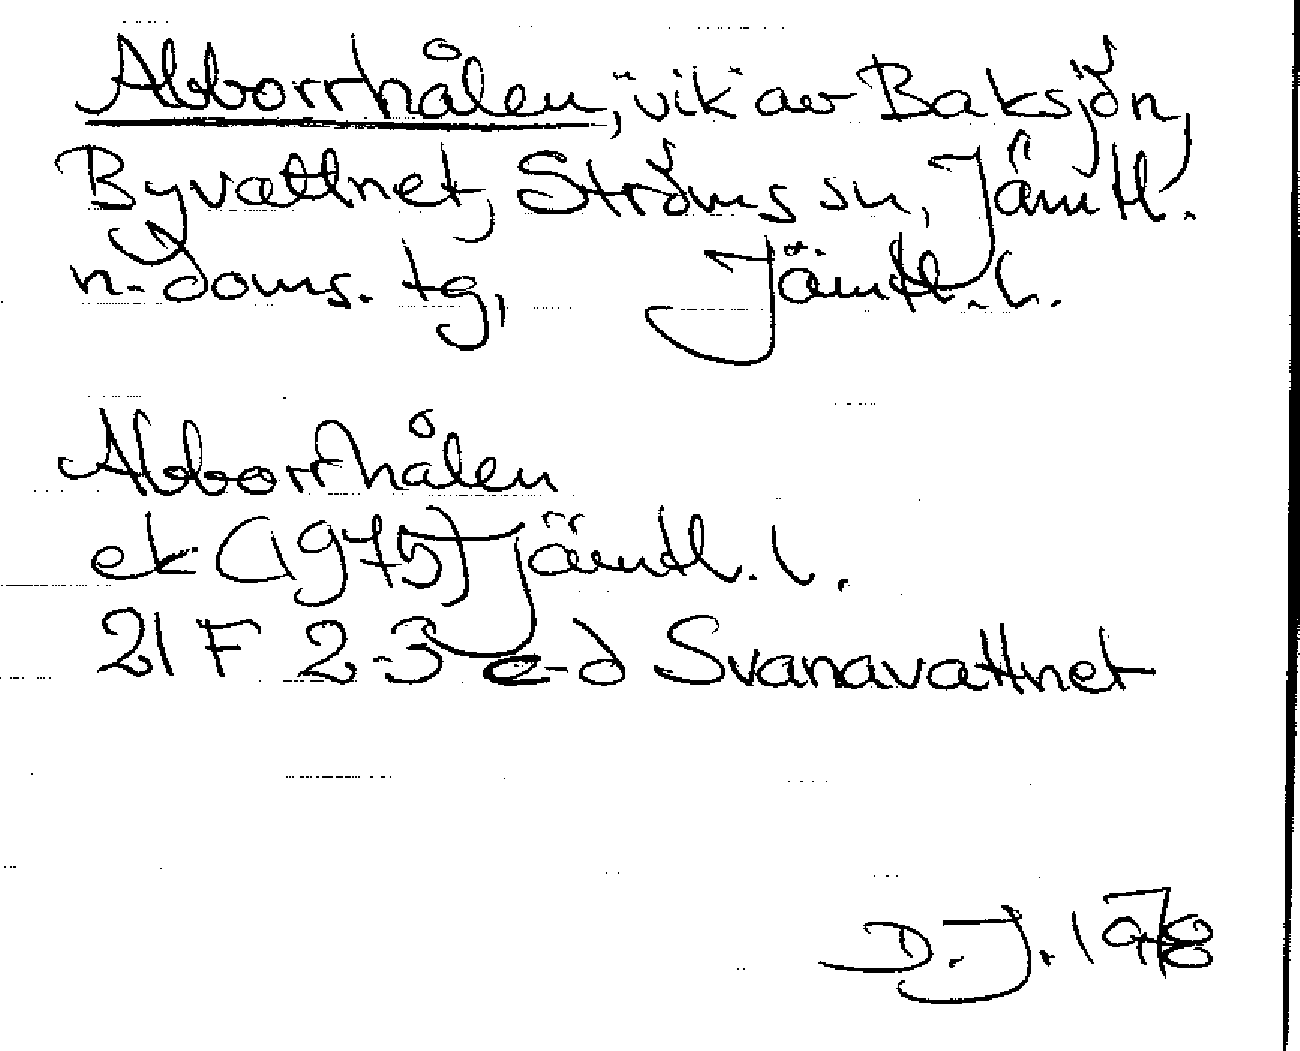 Abborrhålen, "vik" av Baksjön,
Byvattnet, Ströms sn, Jämtl.
n. doms. tg, Jämtl. l.
Abborrhålen
ek (1975) Jämtl. l.
21 F 2-3 c-d Svanavattnet
D. J. 1978